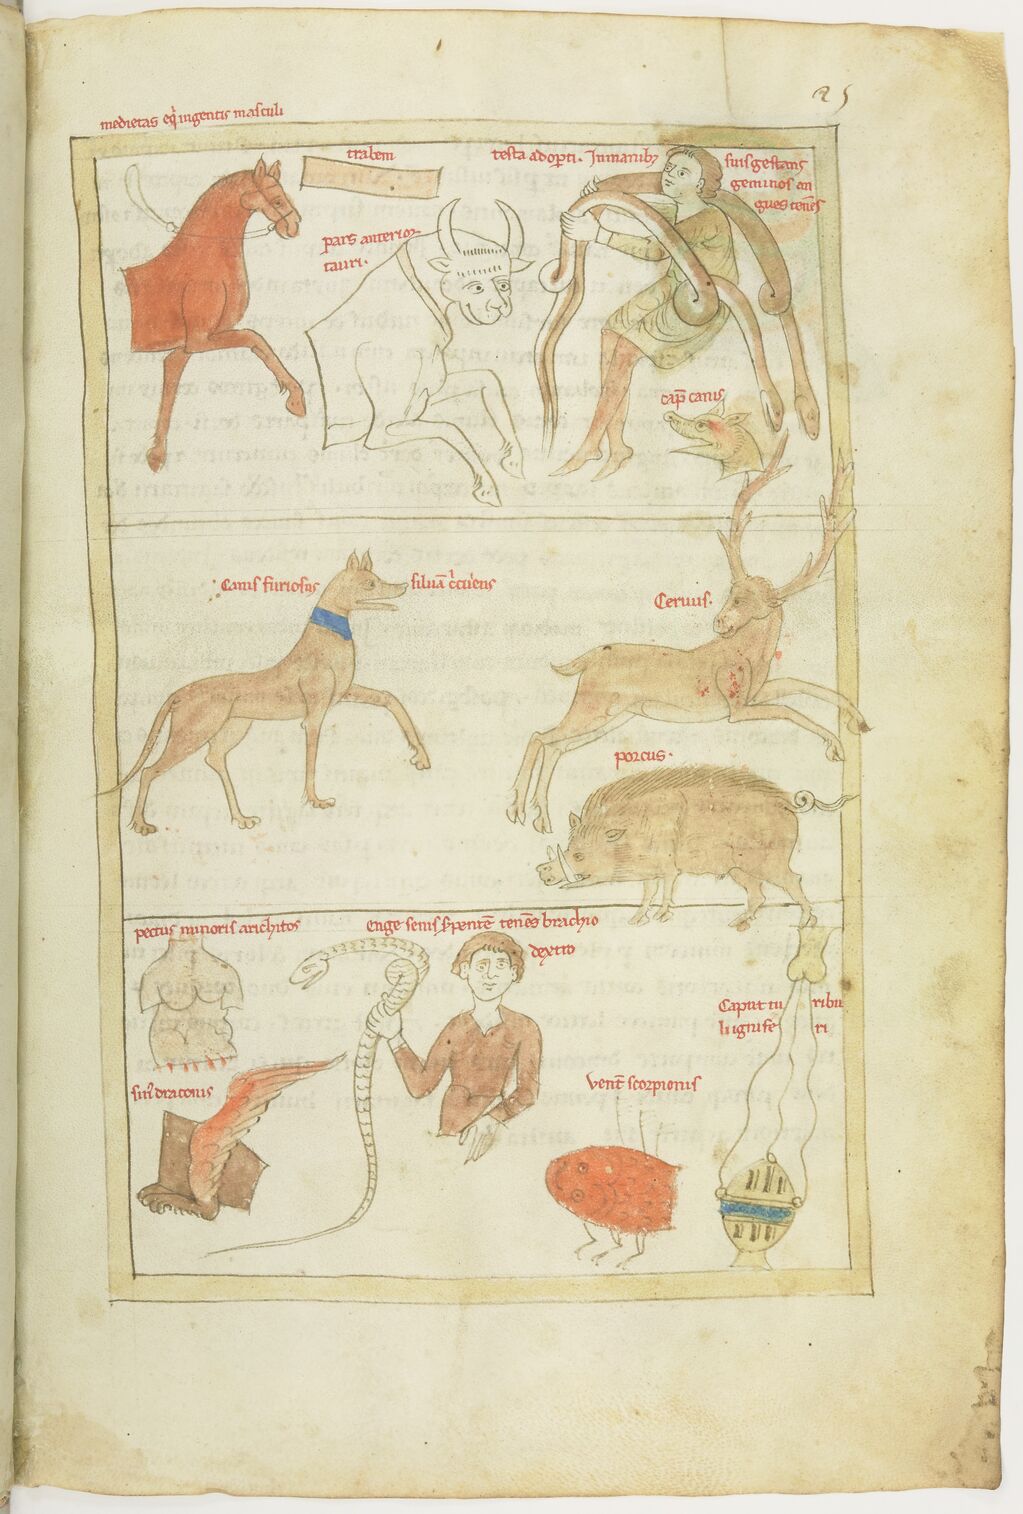 25
medietas eq̓ ingentis masculi
trabem
testa adopti. In manibꝫ
suis gestans
geminos an
gues tenēs
pars anterior
tauri.
cap̄ canis
Canis furiosus
siluā
Ceruus.
porcus.
pectus minoris
Enge senis tenēs brachio
dextro
Caput tu
ribu
li ignife
ri
draconis
uent̄ scorpionis